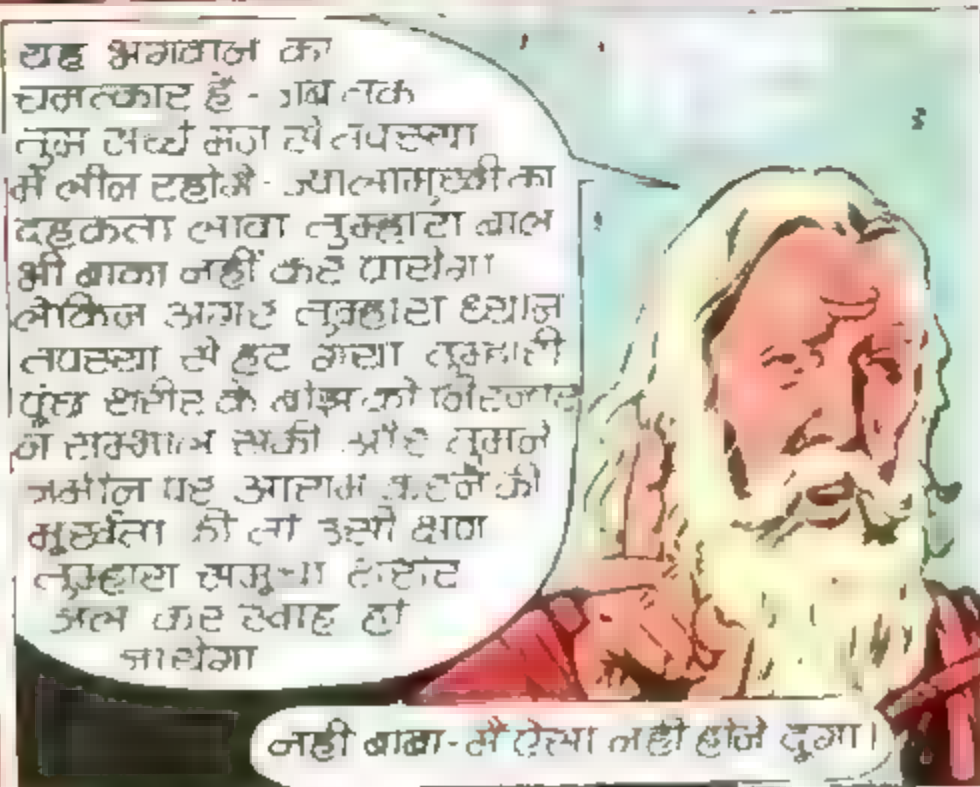 यह भगवान का
चमत्कार है - जब तक
तुम सच्चे मन से तपस्या
में लीन रहोगे - ज्वालामुखी का
दहकता लावा तुम्हारा बाल
भी बाका नहीं कर पायेगा
लेकिन अगर तुम्हारा ध्यान
तपस्या से हट गया तुम्हारी
पूंछ शरीर के बोझ को
न सम्भाल सकी और तुमने
जमीन पर आराम करने की
मूर्खता की तो उसी क्षण
तुम्हारा समूचा शरीर
जल कर स्वाह हो
जायेगा
नही बाबा - मैं ऐसा नही होने दूगा।